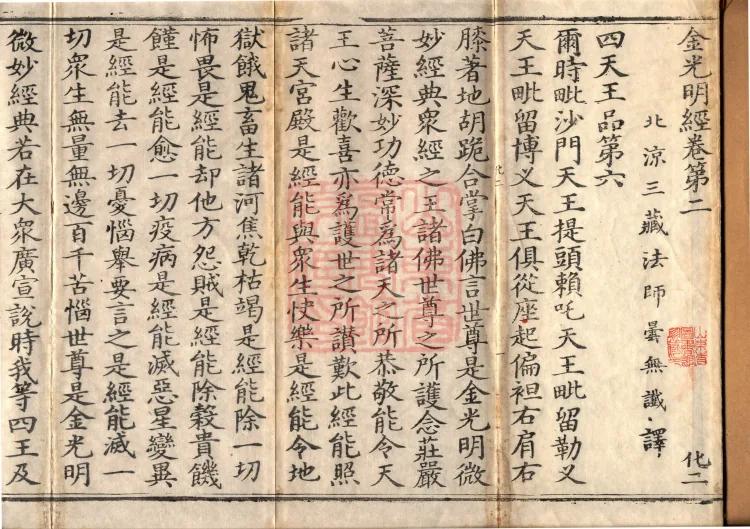 金光明經卷第二
北涼三藏法師曇無讖譯
化二
四天王品第六
爾時毗沙門天王提頭賴吒天王毗留勒叉
天王毗留博叉天王俱從座起偏袒右肩右
膝著地胡跪合掌白佛言世尊是金光明微
妙經典衆經之王諸佛世尊之所護念莊嚴
菩薩深妙功德常為諸天之所恭敬能令天
王心生歡喜亦為護世之所讃歎此經能照
諸天宮殿是經能與衆生快樂是經能令地
獄餓鬼畜生諸河焦乾枯竭是經能除一切
怖畏是經能却他方怨賊是經能除穀貴饑
饉是經能愈一切疫病是經能滅惡星變異
是經能去一切憂惱舉要言之是經能滅一
切衆生無量無邊百千苦惱世尊是金光明
微妙經典若在大衆廣宣說時我等四王及